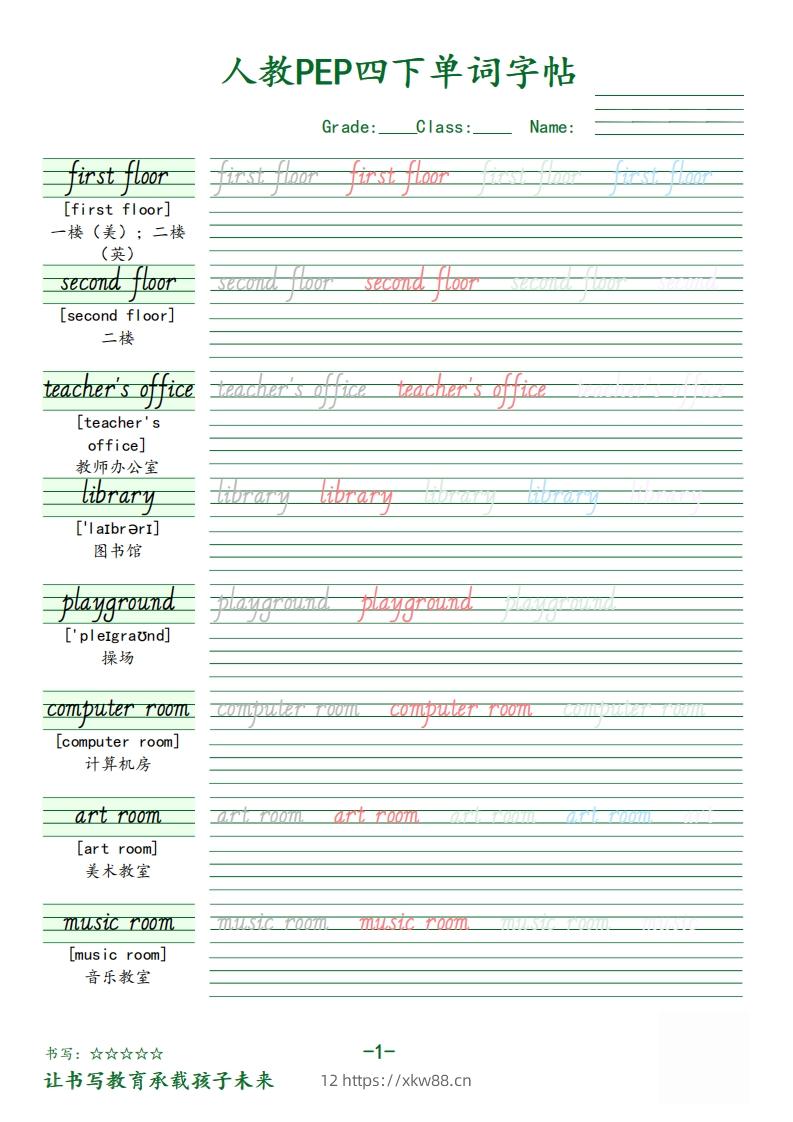 人教PEP四下单词字帖
Grade:____Class:____ Name:
first floor first floor first floor first floor first floor
[first floor]
一楼（美）；二楼
（英）
second floor second floor second floor second floor second
[second floor]
二楼
teacher's office teacher's office teacher's office teacher's office
[teacher's
office]
教师办公室
library library library library library library
['laɪbrərɪ]
图书馆
playground playground playground playground
['pleɪgraʊnd]
操场
computer room computer room computer room computer room
[computer room]
计算机房
art room art room art room art room art room art
[art room]
美术教室
music room music room music room music room music
[music room]
音乐教室
书写：☆☆☆☆☆
-1-
让书写教育承载孩子未来
12 https://xkw88.cn